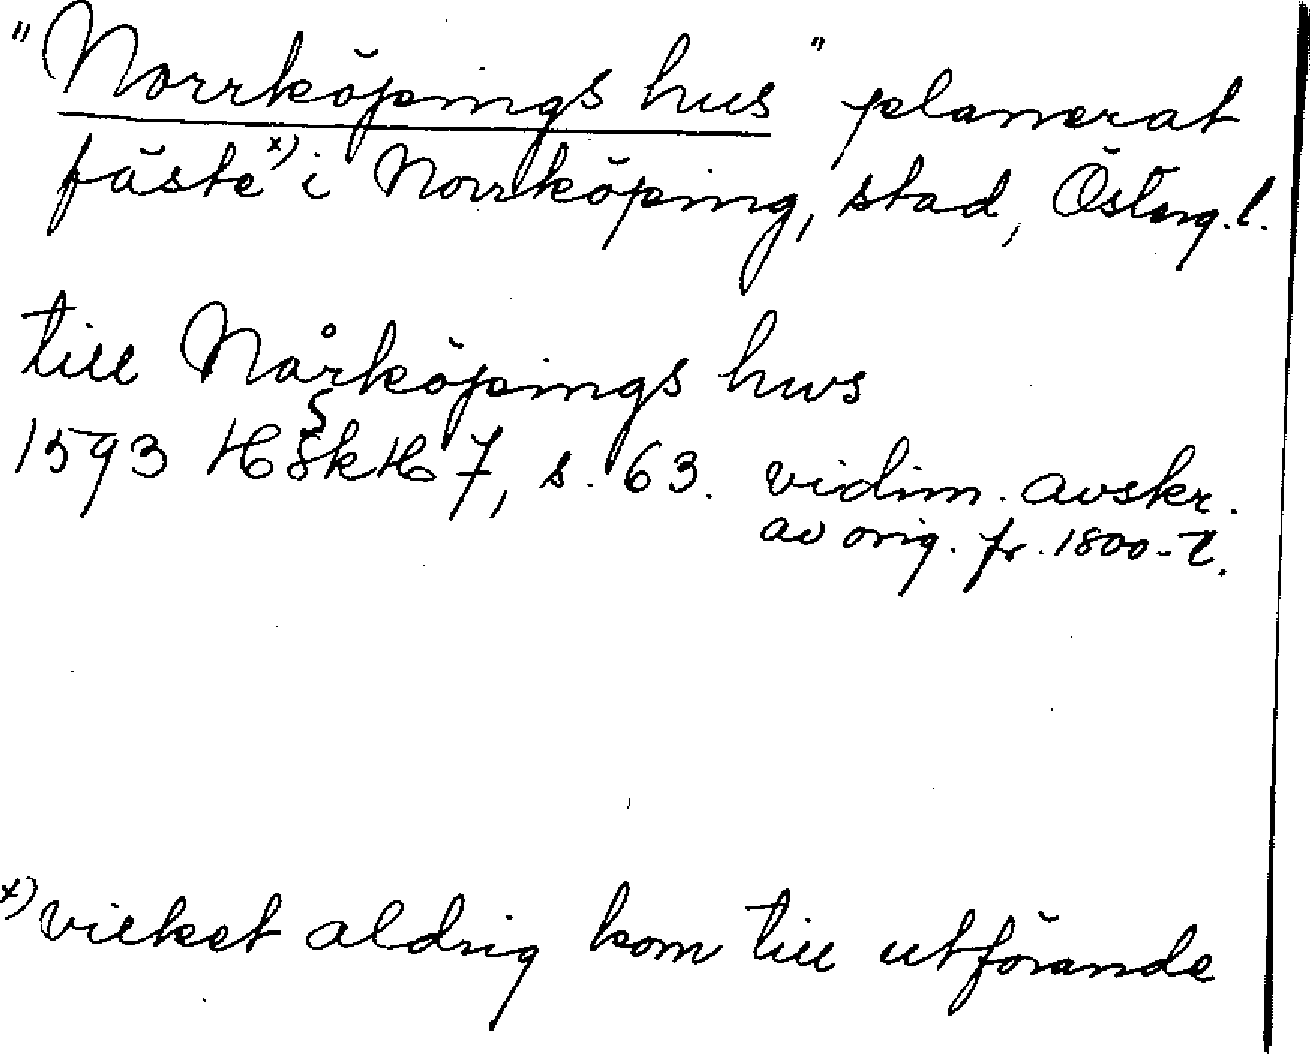 "Norrköpings hus" planerat
fäste x) i Norrköping, stad, Österg. l.
till Nårköpings hws
1593 HSkH 7, s. 63. vidim. avskr.
av orig. fr. 1800-t.
x) vilket aldrig kom till utförande